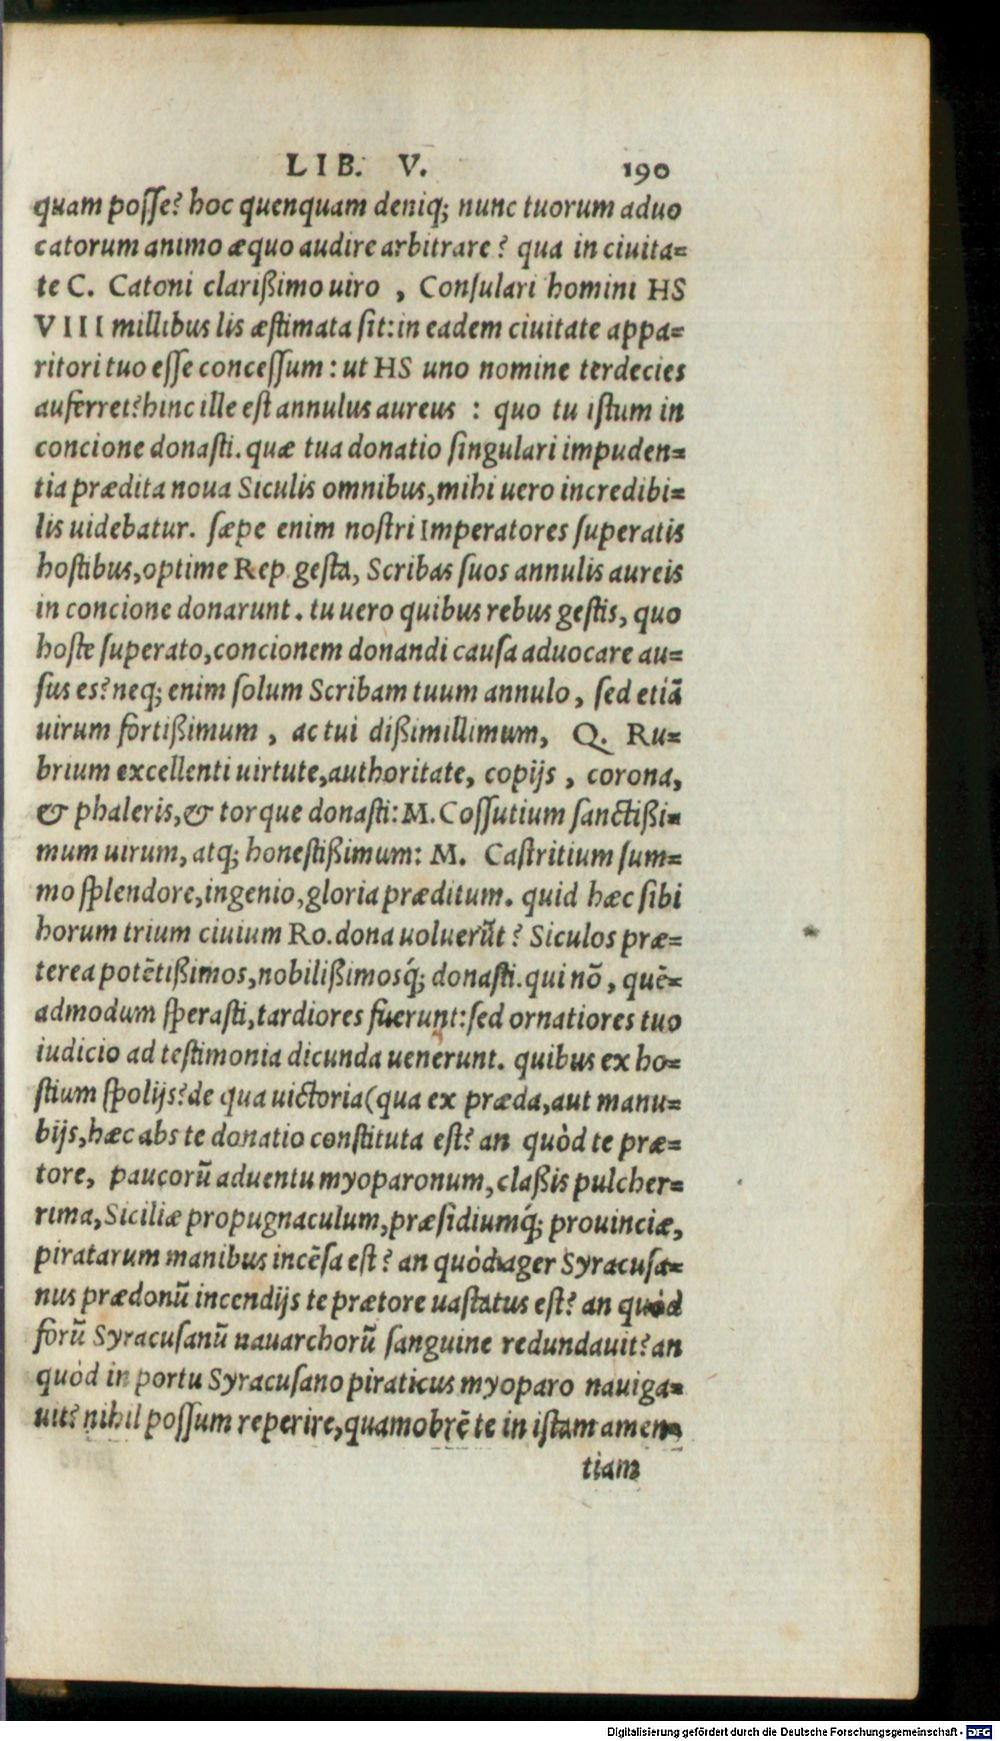 LIB. V. 190
quam posse? hoc quenquam deniq; nunc tuorum aduo
catorum animo æquo audire arbitrare? qua in ciuita=
te C. Catoni clarißimo uiro, Consulari homini HS
VIII millibus lis æstimata sit: in eadem ciuitate appa=
ritori tuo esse concessum: ut HS uno nomine terdecies
auferret? hinc ille est annulus aureus : quo tu istum in
concione donasti. quæ tua donatio singulari impuden=
tia prædita noua Siculis omnibus, mihi uero incredibi=
lis uidebatur. sæpe enim nostri Imperatores superatis
hostibus, optime Rep gesta, Scribas suos annulis aureis
in concione donarunt. tu uero quibus rebus gestis, quo
hoste superato, concionem donandi causa aduocare au=
sus es? neq; enim solum Scribam tuum annulo, sed etiā
uirum fortißimum, ac tui dißimillimum, Q. Ru=
brium excellenti uirtute, authoritate, copijs, corona,
& phaleris, & torque donasti: M. Cossutium sanctißi=
mum uirum, atq; honestißimum: M. Castritium sum=
mo splendore, ingenio, gloria præditum. quid hæc sibi
horum trium ciuium Ro. dona uoluerūt? Siculos præ=
terea potētißimos, nobilißimosq́; donasti. qui nō, quē=
admodum sperasti, tardiores fuerunt: sed ornatiores tuo
iudicio ad testimonia dicunda uenerunt. quibus ex ho=
stium spolijs? de qua uictoria (qua ex præda, aut manu=
bijs, hæc abs te donatio constituta est? an quòd te præ=
tore, paucorū aduentu myoparonum, claßis pulcher=
rima, Siciliæ propugnaculum, præsidiumq́; prouinciæ,
piratarum manibus incēsa est? an quòd ager Syracusa=
nus prædonū incendijs te prætore uastatus est? an quòd
forū Syracusanū nauarchorū sanguine redundauit? an
quòd in portu Syracusano piraticus myoparo nauiga=
uit? nihil possum reperire, quamobrē te in istam amen=
tiam
Digitalisierung gefördert durch die Deutsche Forschungsgemeinschaft - DFG